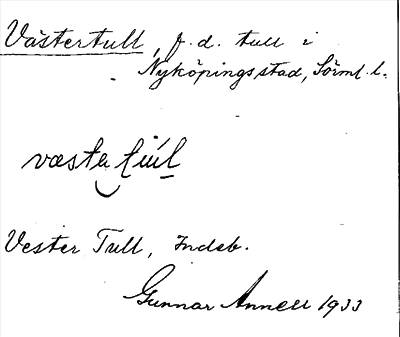 Västertull, f.d. tull i
Nyköpings stad, Söml. l.
væste túl
Vester Tull, Indeb.
Gunnar Annell 1933